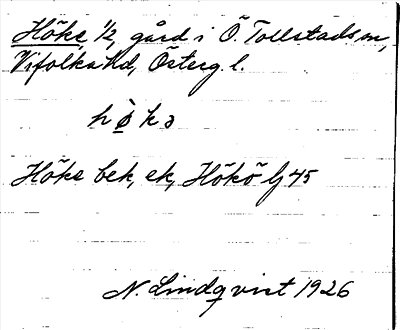 Höke, 1/2, gård i Ö. Tollstads sn,
Vifolka hd, Österg. l.
hö̀kə
Höke bek, ek, Hökö lj 45
N. Lindqvist 1926